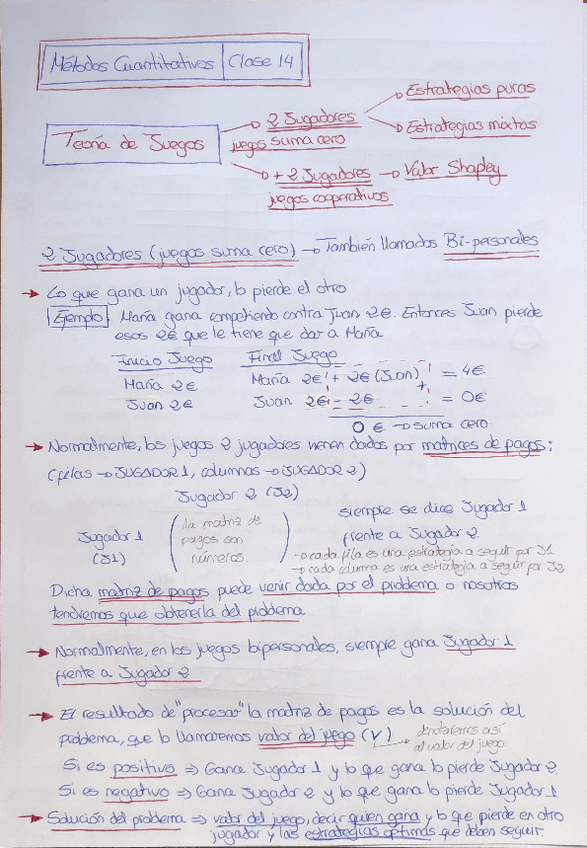 Métodos Cuantitativos | Clase 14
Teoría de Juegos
→ 2 Jugadores
juegos suma cero
→ Estrategias puras
→ Estrategias mixtas
→ + 2 Jugadores → Valor Shapley
juegos cooperativos
2 Jugadores (juegos suma cero) → También llamados Bi-personales
→ Lo que gana un jugador, lo pierde el otro
Ejemplo María gana compitiendo contra Juan 2€. Entonces Juan pierde
esos 2€ que le tiene que dar a María
Inicio Juego Final Juego
María 2€ María 2€ + 2€ (Juan) = 4€
Juan 2€ Juan 2€ - 2€ + = 0€
0 € → suma cero
→ Normalmente, los juegos 2 jugadores vienen dados por matrices de pagos:
(filas → JUGADOR 1, columnas → JUGADOR 2)
Jugador 2 (J2)
Jugador 1
(J1)
(la matriz de
pagos son
números.)
siempre se dice Jugador 1
frente a Jugador 2.
→ cada fila es una estrategia a seguir por J1
→ cada columna es una estrategia a seguir por J2
Dicha matriz de pagos puede venir dada por el problema o nosotros
tendremos que obtenerla del problema.
→ Normalmente, en los juegos bipersonales, siempre gana Jugador 1
frente a Jugador 2
→ El resultado de "procesar" la matriz de pagos es la solución del
problema, que lo llamaremos valor del juego (V)
→ denotaremos así
al valor del juego.
Si es positivo ⇒ Gana Jugador 1 y lo que gana lo pierde Jugador 2.
Si es negativo ⇒ Gana Jugador 2 y lo que gana lo pierde Jugador 1
→ Solución del problema ⇒ valor del juego, decir quien gana y lo que pierde en otro
jugador y las estrategias óptimas que deben seguir.